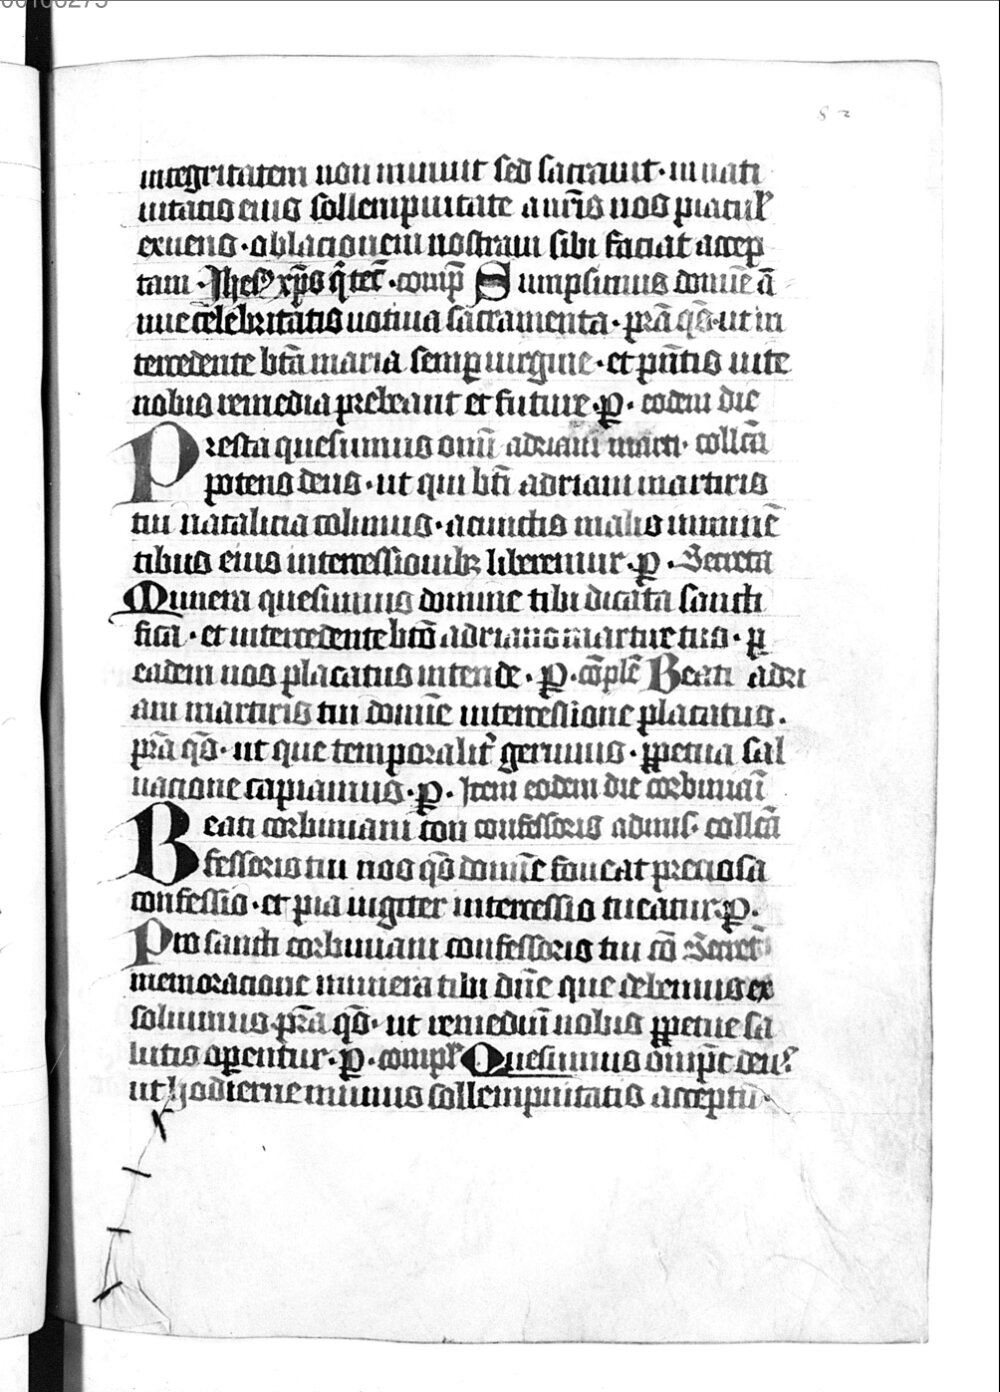 82
integritatem non minuit sed sacrauit · in nati
uitatis eius sollempnitate a nr̄is nos piacul̓
exuens · oblacionem nostram sibi faciat accep
tam · Jhesꝰ xp̄s q̄ tec̄ · comp̄ Sumpsimus domīe ā
nue celebritatis uotiua sacramenta · pr̄a qs̄ · ut in
tercedente btā maria semp uirgine · et pn̄tis uite
nobis remedia prebeant et future · ꝑ · eodem die
Presta quesumus omī adriani mārti · collcā
potens deus · ut qui bti adriani martiris
tui natalicia colimus · a cunctis malis iminē
tibus eius intercessionibꝫ liberemur · ꝑ · Secreta
Munera quesumus domine tibi dicata sancti
fica · et intercedente btō adriano martire tuo · ꝑ
eadem nos placatus intende · ꝑ · cōplē Beati adri
ani martiris tui domīe intercessione placatus ·
pr̄a qs̄ · ut que temporalit̓ gerimus · ꝑpetua sal
uacione capiamus · ꝑ · Item eodem die corbiniāi
Beati corbiniani con confessoris aduis̄ · collcā
fessoris tui nos qs̄ domīe foueat preciosa
confessio · et pia iugiter intercessio tueatur · ꝑ ·
Pro sancti corbiniani confessoris tui cō Secret̄
memoracione munera tibi dn̄e que debemus ex
soluimus · pr̄a qs̄ · ut remediū nobis ꝑpetue sa
lutis oꝑentur · ꝑ · compl̓ Quesumus omp̄t deus
ut hodierne munus sollempnitatis acceptū ·